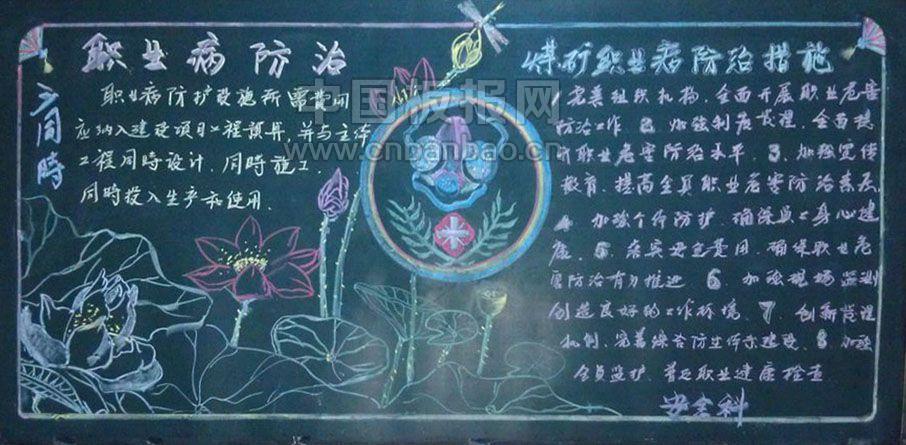 职业病防治
三同時
职业病防护设施所需费用
应纳入建设项目工程预算，并与主体
工程同時设计，同時施工，
同時投入生产和使用.
煤矿职业病防治措施
1 完善组织机构，全面开展职业危害
防治工作 2. 加强制度管理，全面提
升职业危害防治水平. 3. 加强宣传
教育，提高全员职业危害防治素质
4. 加强个体防护，确保员工身心健
康. 5. 落实安全费用，确保职业危
害防治有力推进 6 加强现场监测
创造良好的工作环境. 7 创新管理
机制，完善综合防治体系建设. 8 加强
全员监护，普及职业健康检查
安全科
中国板报网
www.cnbanbao.cn